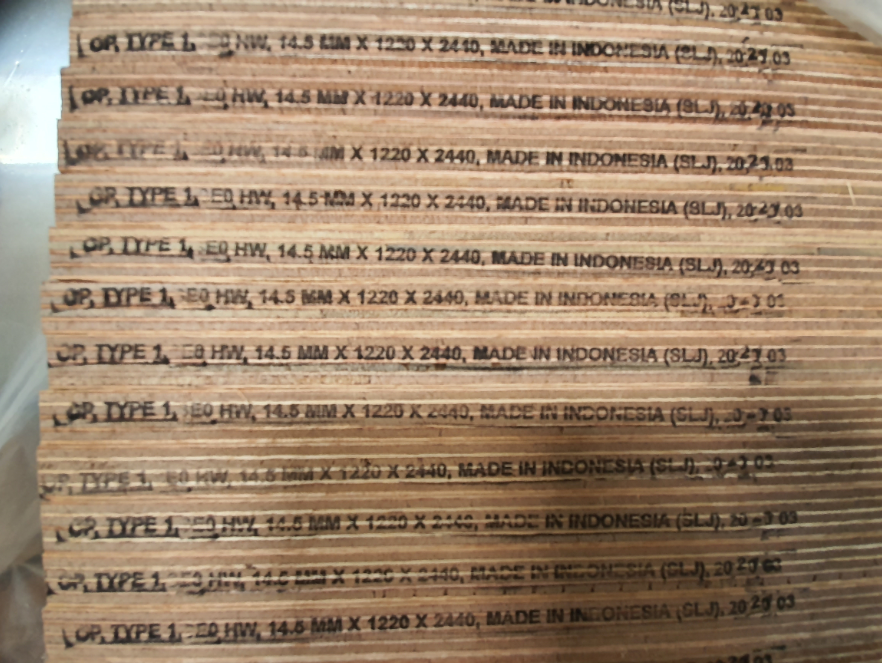 MADE IN INDONESIA (SLJ), 03
OP, TYPE 1, E0 HW, 14.5 MM X 1220 X 2440, MADE IN INDONESIA (SLJ), 03
OP, TYPE 1, E0 HW, 14.5 MM X 1220 X 2440, MADE IN INDONESIA (SLJ), 03
OP, TYPE 1, E0 HW, 14.5 MM X 1220 X 2440, MADE IN INDONESIA (SLJ), 03
OP, TYPE 1, E0 HW, 14.5 MM X 1220 X 2440, MADE IN INDONESIA (SLJ), 03
OP, TYPE 1, E0 HW, 14.5 MM X 1220 X 2440, MADE IN INDONESIA (SLJ), 03
OP, TYPE 1, E0 HW, 14.5 MM X 1220 X 2440, MADE IN INDONESIA (SLJ), 03
OP, TYPE 1, E0 HW, 14.5 MM X 1220 X 2440, MADE IN INDONESIA (SLJ), 03
OP, TYPE 1, E0 HW, 14.5 MM X 1220 X 2440, MADE IN INDONESIA (SLJ), 03
OP, TYPE 1, E0 HW, 14.5 MM X 1220 X 2440, MADE IN INDONESIA (SLJ), 03
OP, TYPE 1, E0 HW, 14.5 MM X 1220 X 2440, MADE IN INDONESIA (SLJ), 03
OP, TYPE 1, E0 HW, 14.5 MM X 1220 X 2440, MADE IN INDONESIA (SLJ), 03
OP, TYPE 1, E0 HW, 14.5 MM X 1220 X 2440, MADE IN INDONESIA (SLJ), 03